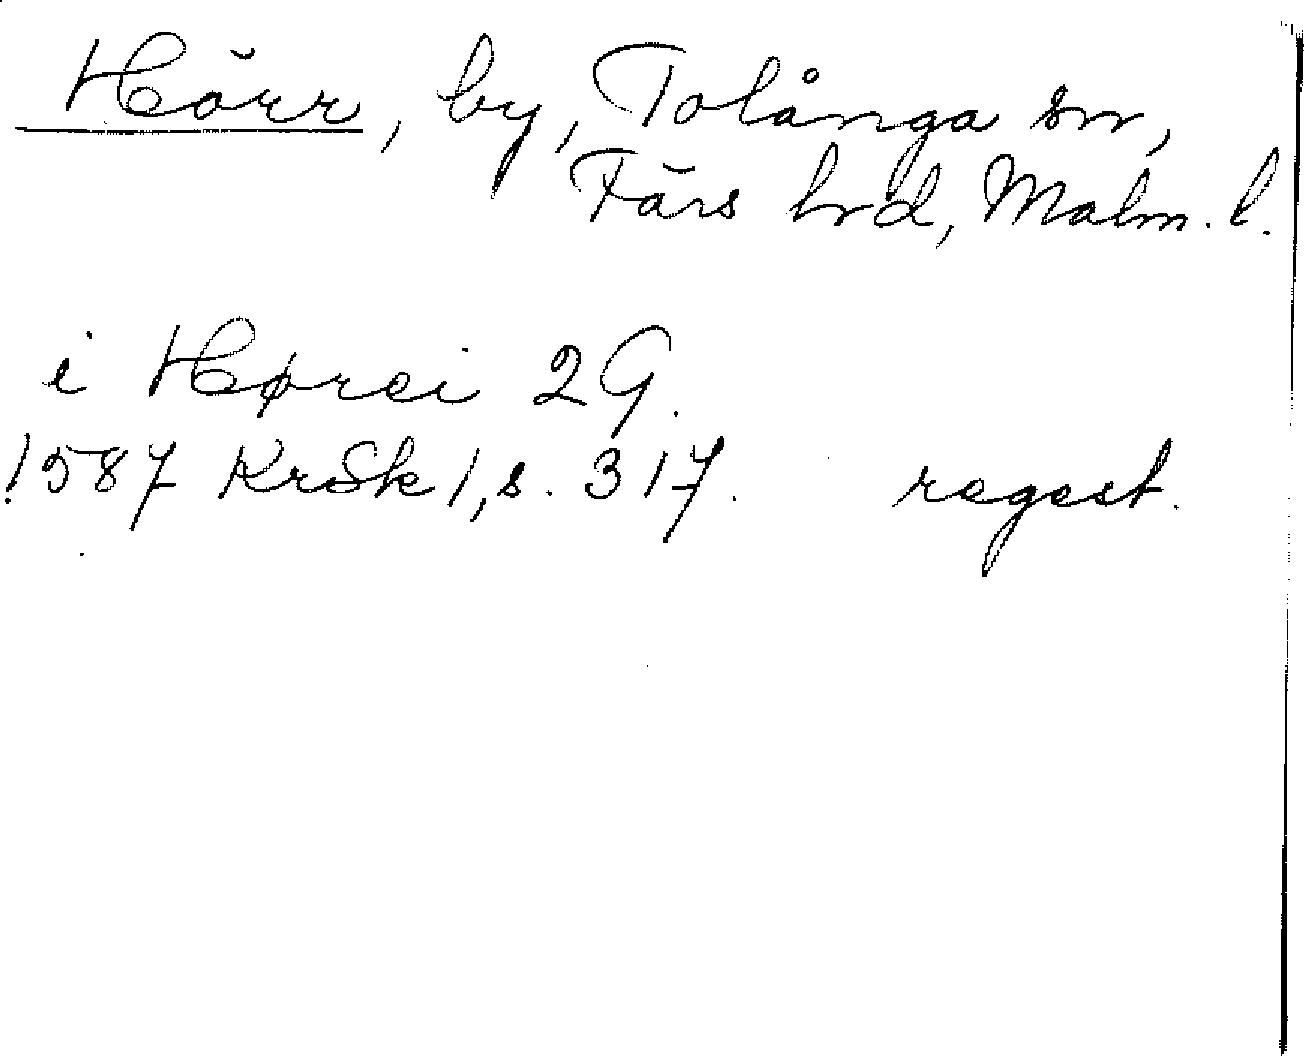 Hörr, by, Tolånga sn,
Färs hrd, Malm. l.
i Hørei 2 G.
1587 KrSk 1, s. 317. regest.